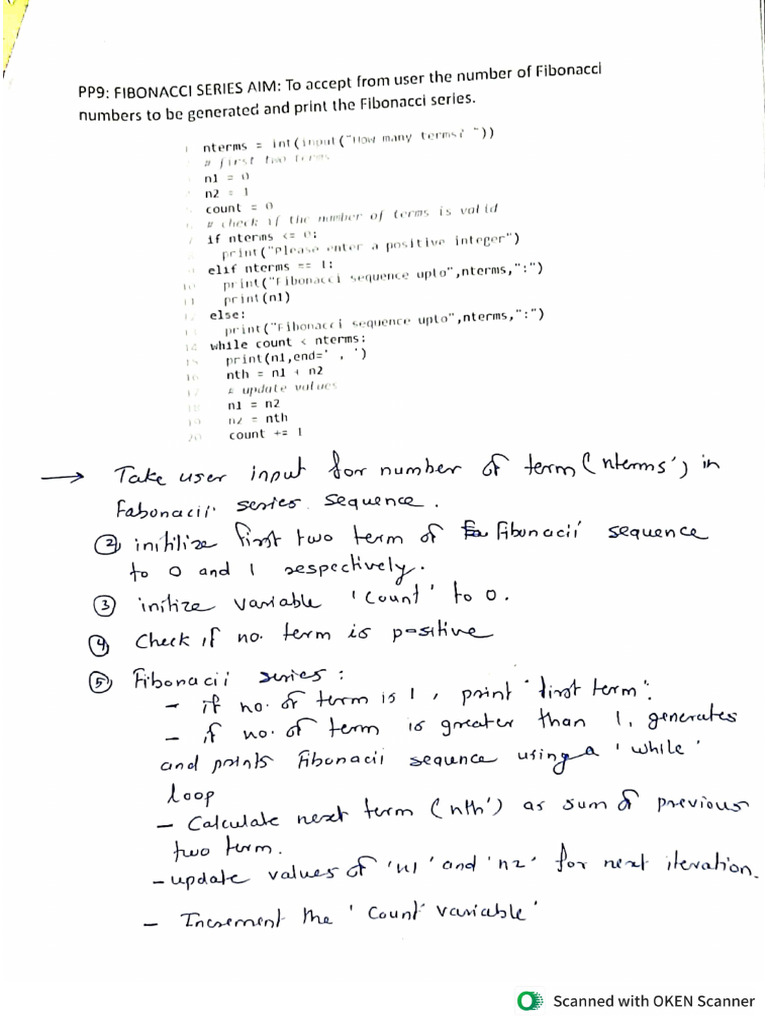 PP9: FIBONACCI SERIES AIM: To accept from user the number of Fibonacci
numbers to be generated and print the Fibonacci series.
1 nterms = int(input("How many terms? "))
# first two terms
n1 = 0
n2 = 1
count = 0
# check if the number of terms is valid
if nterms <= 0:
print("Please enter a positive integer")
elif nterms == 1:
10 print("Fibonacci sequence upto",nterms,":")
11 print(n1)
12 else:
13 print("Fibonacci sequence upto",nterms,":")
14 while count < nterms:
15 print(n1,end=' , ')
16 nth = n1 + n2
17 # update values
18 n1 = n2
19 n2 = nth
20 count += 1
→ Take user input for number of term (nterms') in
Fabonacii series sequence.
② initilize first two term of Fibonacii sequence
to 0 and 1 respectively.
③ initize variable 'count' to 0.
④ Check if no. term is positive
⑤ Fibonacii series :
- if no. of term is 1, print "first term".
- if no. of term is greater than 1, generates
and prints Fibonacii sequnce using a 'while'
loop
- Calculate next term (nth') as sum of previous
two term.
- update values of 'n1' and 'n2' for next iteration.
- Increment the 'Count variable'
Scanned with OKEN Scanner